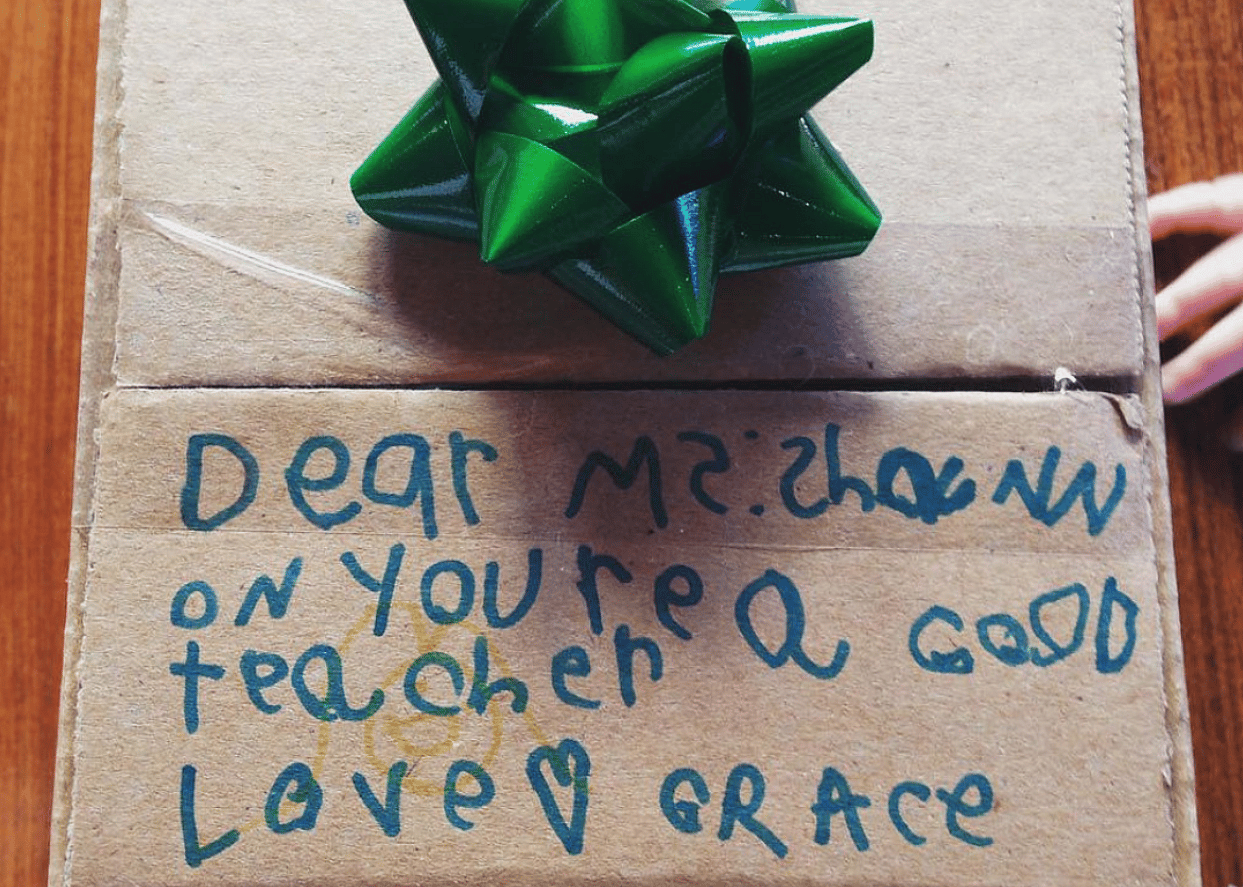 Dear Ms.
oN YOUre a GOOD
teacher
Love ♡ GRAce